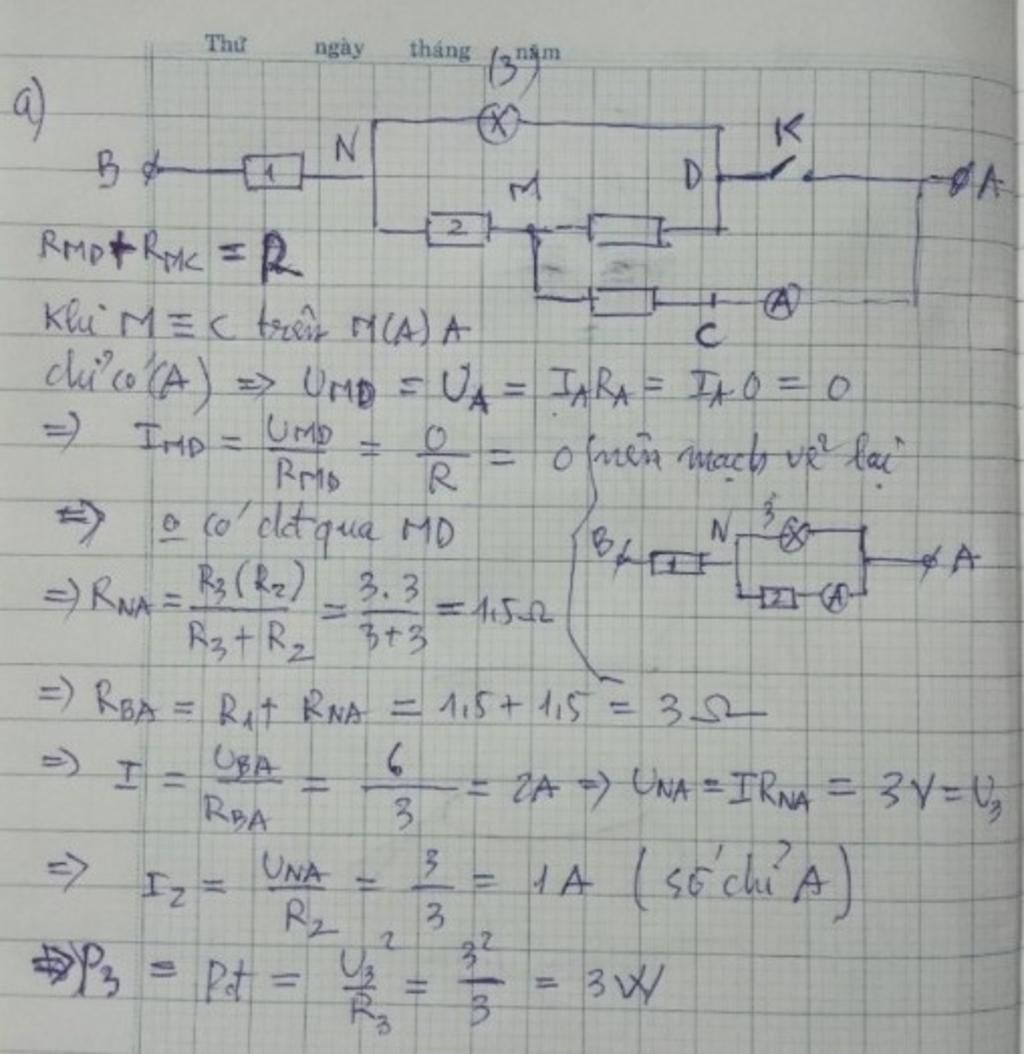 Thứ ngày tháng năm
(3)
a)
K
B 1 N M D A
2
R_MD + R_MC = R
C A
Khi M ≡ C trên M(A) A
chỉ có (A) => U_MD = U_A = I_A R_A = I_A 0 = 0
=> I_MD = U_MD / R_MD = 0 / R = 0 nên mạch vẽ lại
=> o có dđ qua MD
B 1 N 3 2 A A
=> R_NA = R_3 (R_2) / R_3 + R_2 = 3.3 / 3+3 = 1,5Ω
=> R_BA = R_1 + R_NA = 1,5 + 1,5 = 3Ω
=> I = U_BA / R_BA = 6 / 3 = 2A => U_NA = I R_NA = 3V = U_3
=> I_2 = U_NA / R_2 = 3 / 3 = 1A (số chỉ A)
=> P_3 = Pđ = U_3² / R_3 = 3² / 3 = 3W